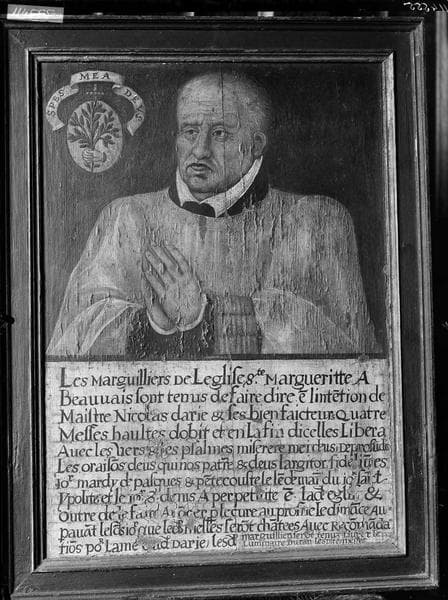 114555
SPES MEA DEUS
Les Marguilliers de Leglise s.te Margueritte A
Beauvais sont tenus de faire dire ē lintētion de
Maistre Nicolas darie & ses bien faicteurs Quatre
Messes haultes dobit et en La fin dicelles Libera
Avec les vers & les psalmes miserere mei deus, De profūdis
Les oraisōs deus qui nos patrē & deus Largitor, fideliū, es
Jo.rs mardy de pasques & pētecouste le lēdemaī du jo.r saīt
Ypolite et le jo.r s. denis A perpetuite ē lad eglise &
Oultre de
au prosne le dimāce Au
pavāt lesd jo.rs que lesd Messes serōt chātees Avec Recōmāda
tiōs po.r Lame dud Darie, lesd
marguilliers
Luminaire